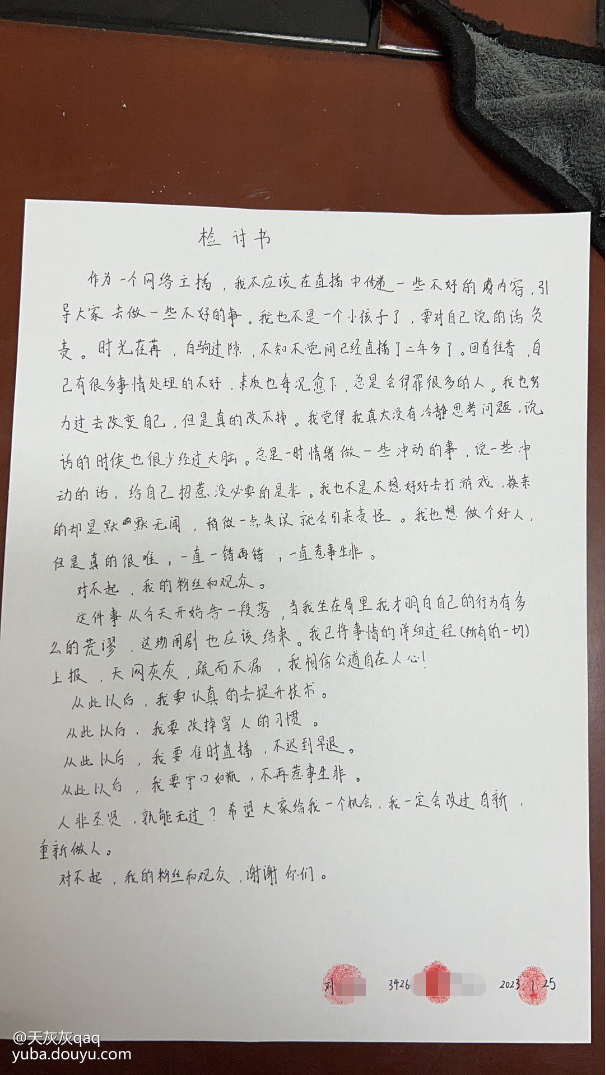 检讨书
作为一个网络主播，我不应该在直播中传递一些不好的内容，引
导大家去做一些不好的事。我也不是一个小孩子了，要对自己说的话负
责。时光荏苒，白驹过隙，不知不觉间已经直播了二年多了。回首往昔，自
己有很多事情处理的不好，素质也每况愈下，总是会得罪很多的人。我也努
力过去改变自己，但是真的改不掉。我觉得我真太没有冷静思考问题，说
话的时侯也很少经过大脑。总是一时情绪做一些冲动的事，说一些冲
动的话，给自己招惹没必要的是非。我也不是不想好好去打游戏，换来
的却是默默无闻，稍做一点失误就会引来责怪。我也想做个好人，
但是真的很难，一直一错再错，一直惹事生非。
对不起，我的粉丝和观众。
这件事从今天开始告一段落，当我坐在局里我才明白自己的行为有多
么的荒谬，这场闹剧也应该结束。我已将事情的详细过程（所有的一切）
上报，天网灰灰，疏而不漏，我相信公道自在人心！
从此以后，我要认真的去提升技术。
从此以后，我要改掉骂人的习惯。
从此以后，我要准时直播，不迟到早退。
从此以后，我要守口如瓶，不再惹事生非。
人非圣贤，孰能无过？希望大家给我一个机会，我一定会改过自新，
重新做人。
对不起，我的粉丝和观众，谢谢你们。
刘 3426 2023.1.25
@天灰灰qaq
yuba.douyu.com